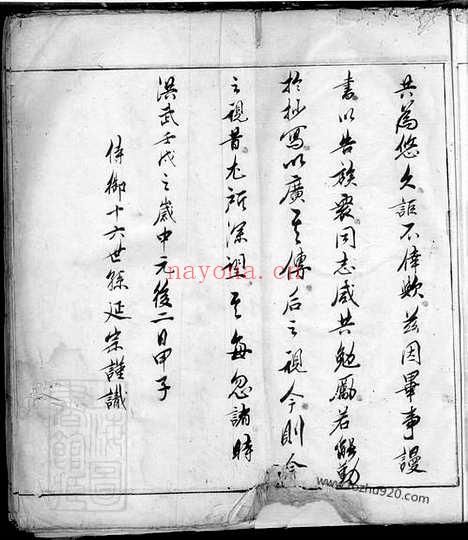 共為悠久詎不偉歟茲因畢事謾
書以告族眾同志咸共勉勵若能勤
於抄寫以廣其傳后之視今則今
之視昔尤所深望其毋忽諸時
洪武壬戌之歲中元後二日甲子
侍御十六世孫延宗謹識
nayona.cn
rozhu920.com